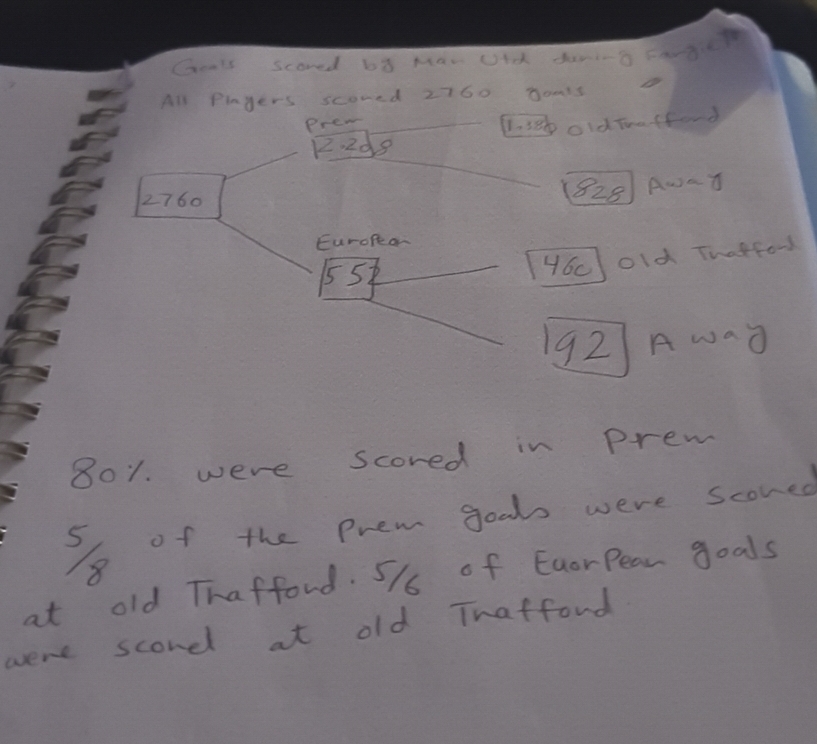 Goals scored by Man Utd during
All Players scored 2760 goals
Prem
2.208
1.380 Old Trafford
2760
828 Away
European
552
460 Old Trafford
92 Away
80% were scored in Prem
5/8 of the Prem goals were scored
at old Trafford. 5/6 of EuorPean goals
were scored at old Trafford